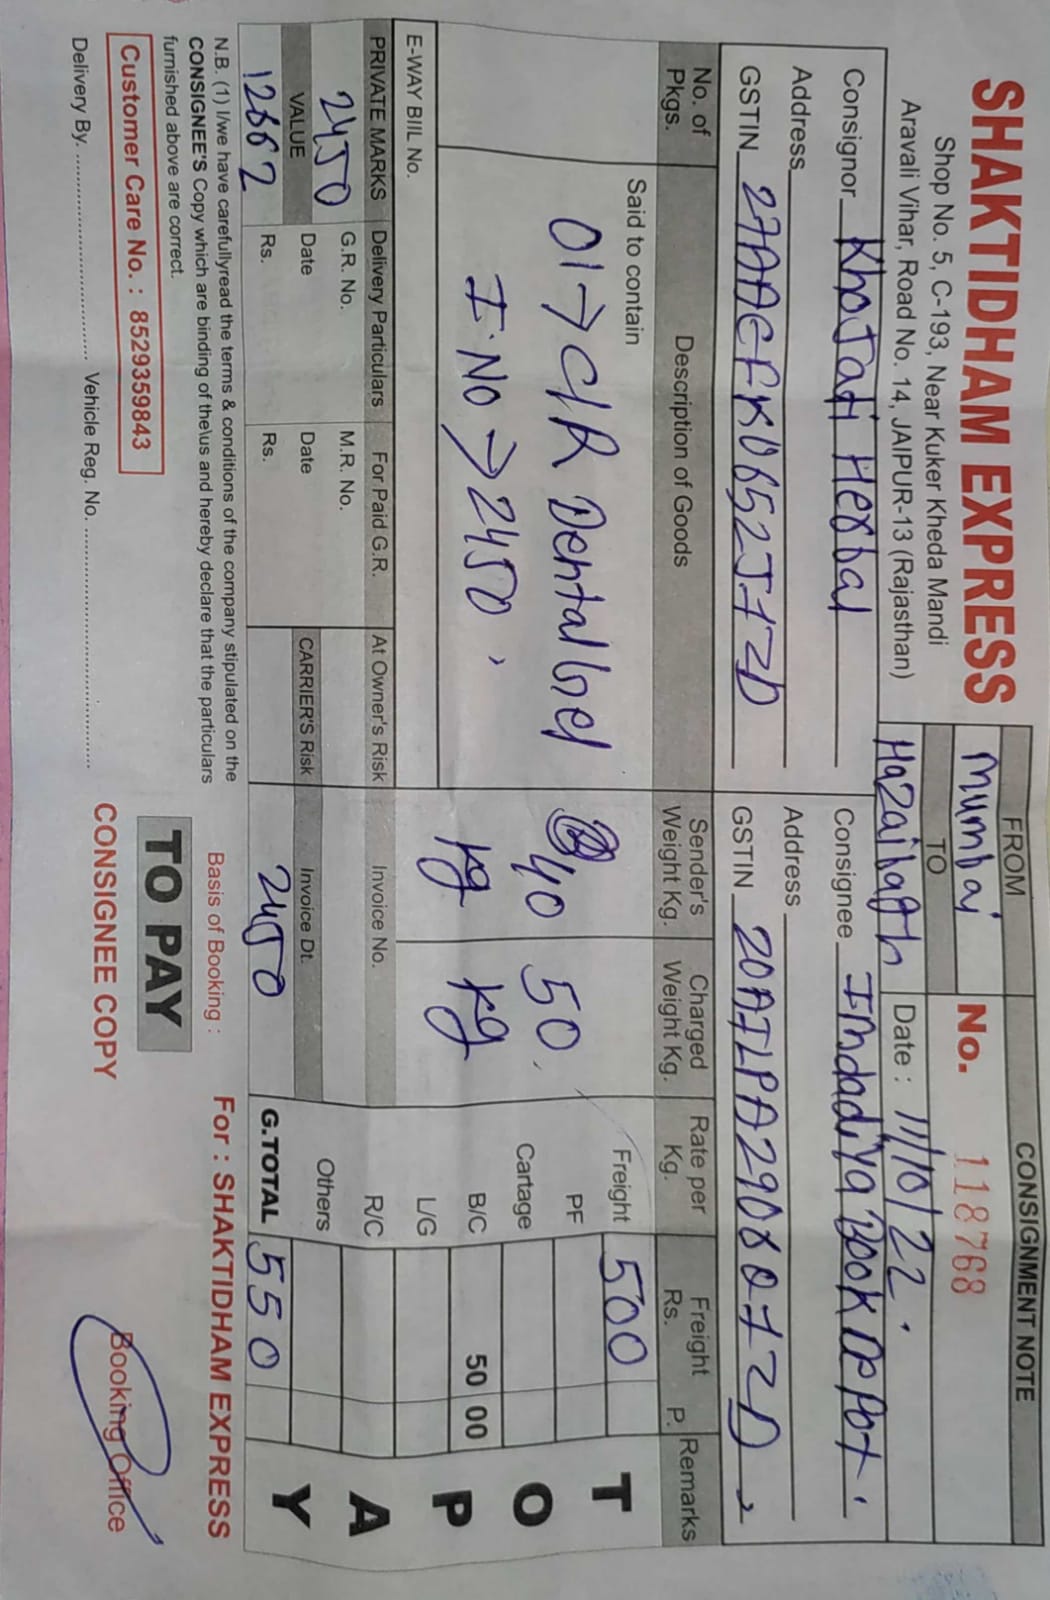 CONSIGNMENT NOTE
SHAKTIDHAM EXPRESS
Shop No. 5, C-193, Near Kuker Kheda Mandi
Aravali Vihar, Road No. 14, JAIPUR-13 (Rajasthan)
FROM
Mumbai
TO
Hazaibagh
No. 118768
Date : 11/10/22.
Consignor Khojati Herbal
Address
GSTIN
Consignee Imdadiya Book Depot
Address
GSTIN
No. of Pkgs.
Description of Goods
Sender's Weight Kg.
Charged Weight Kg.
Rate per Kg.
Freight Rs. P.
Remarks
Said to contain
01 → C/R Dental Gel
I.NO → 2450
40 kg
50 kg
Freight 500
PF
Cartage
B/C 50 00
L/G
R/C
Others
G.TOTAL 550
T
O
P
A
Y
E-WAY BIIL No.
PRIVATE MARKS
2450
VALUE
12662
Delivery Particulars
G.R. No.
Date
Rs.
For Paid G.R.
M.R. No.
Date
Rs.
At Owner's Risk
CARRIER'S Risk
Invoice No.
Invoice Dt.
2450
N.B. (1) I/we have carefullyread the terms & conditions of the company stipulated on the
CONSIGNEE'S Copy which are binding of the\us and hereby declare that the particulars
furnished above are correct.
Basis of Booking :
For : SHAKTIDHAM EXPRESS
Customer Care No. : 8529359843
TO PAY
CONSIGNEE COPY
Delivery By. .......................... Vehicle Reg. No. ..........................
Booking Office